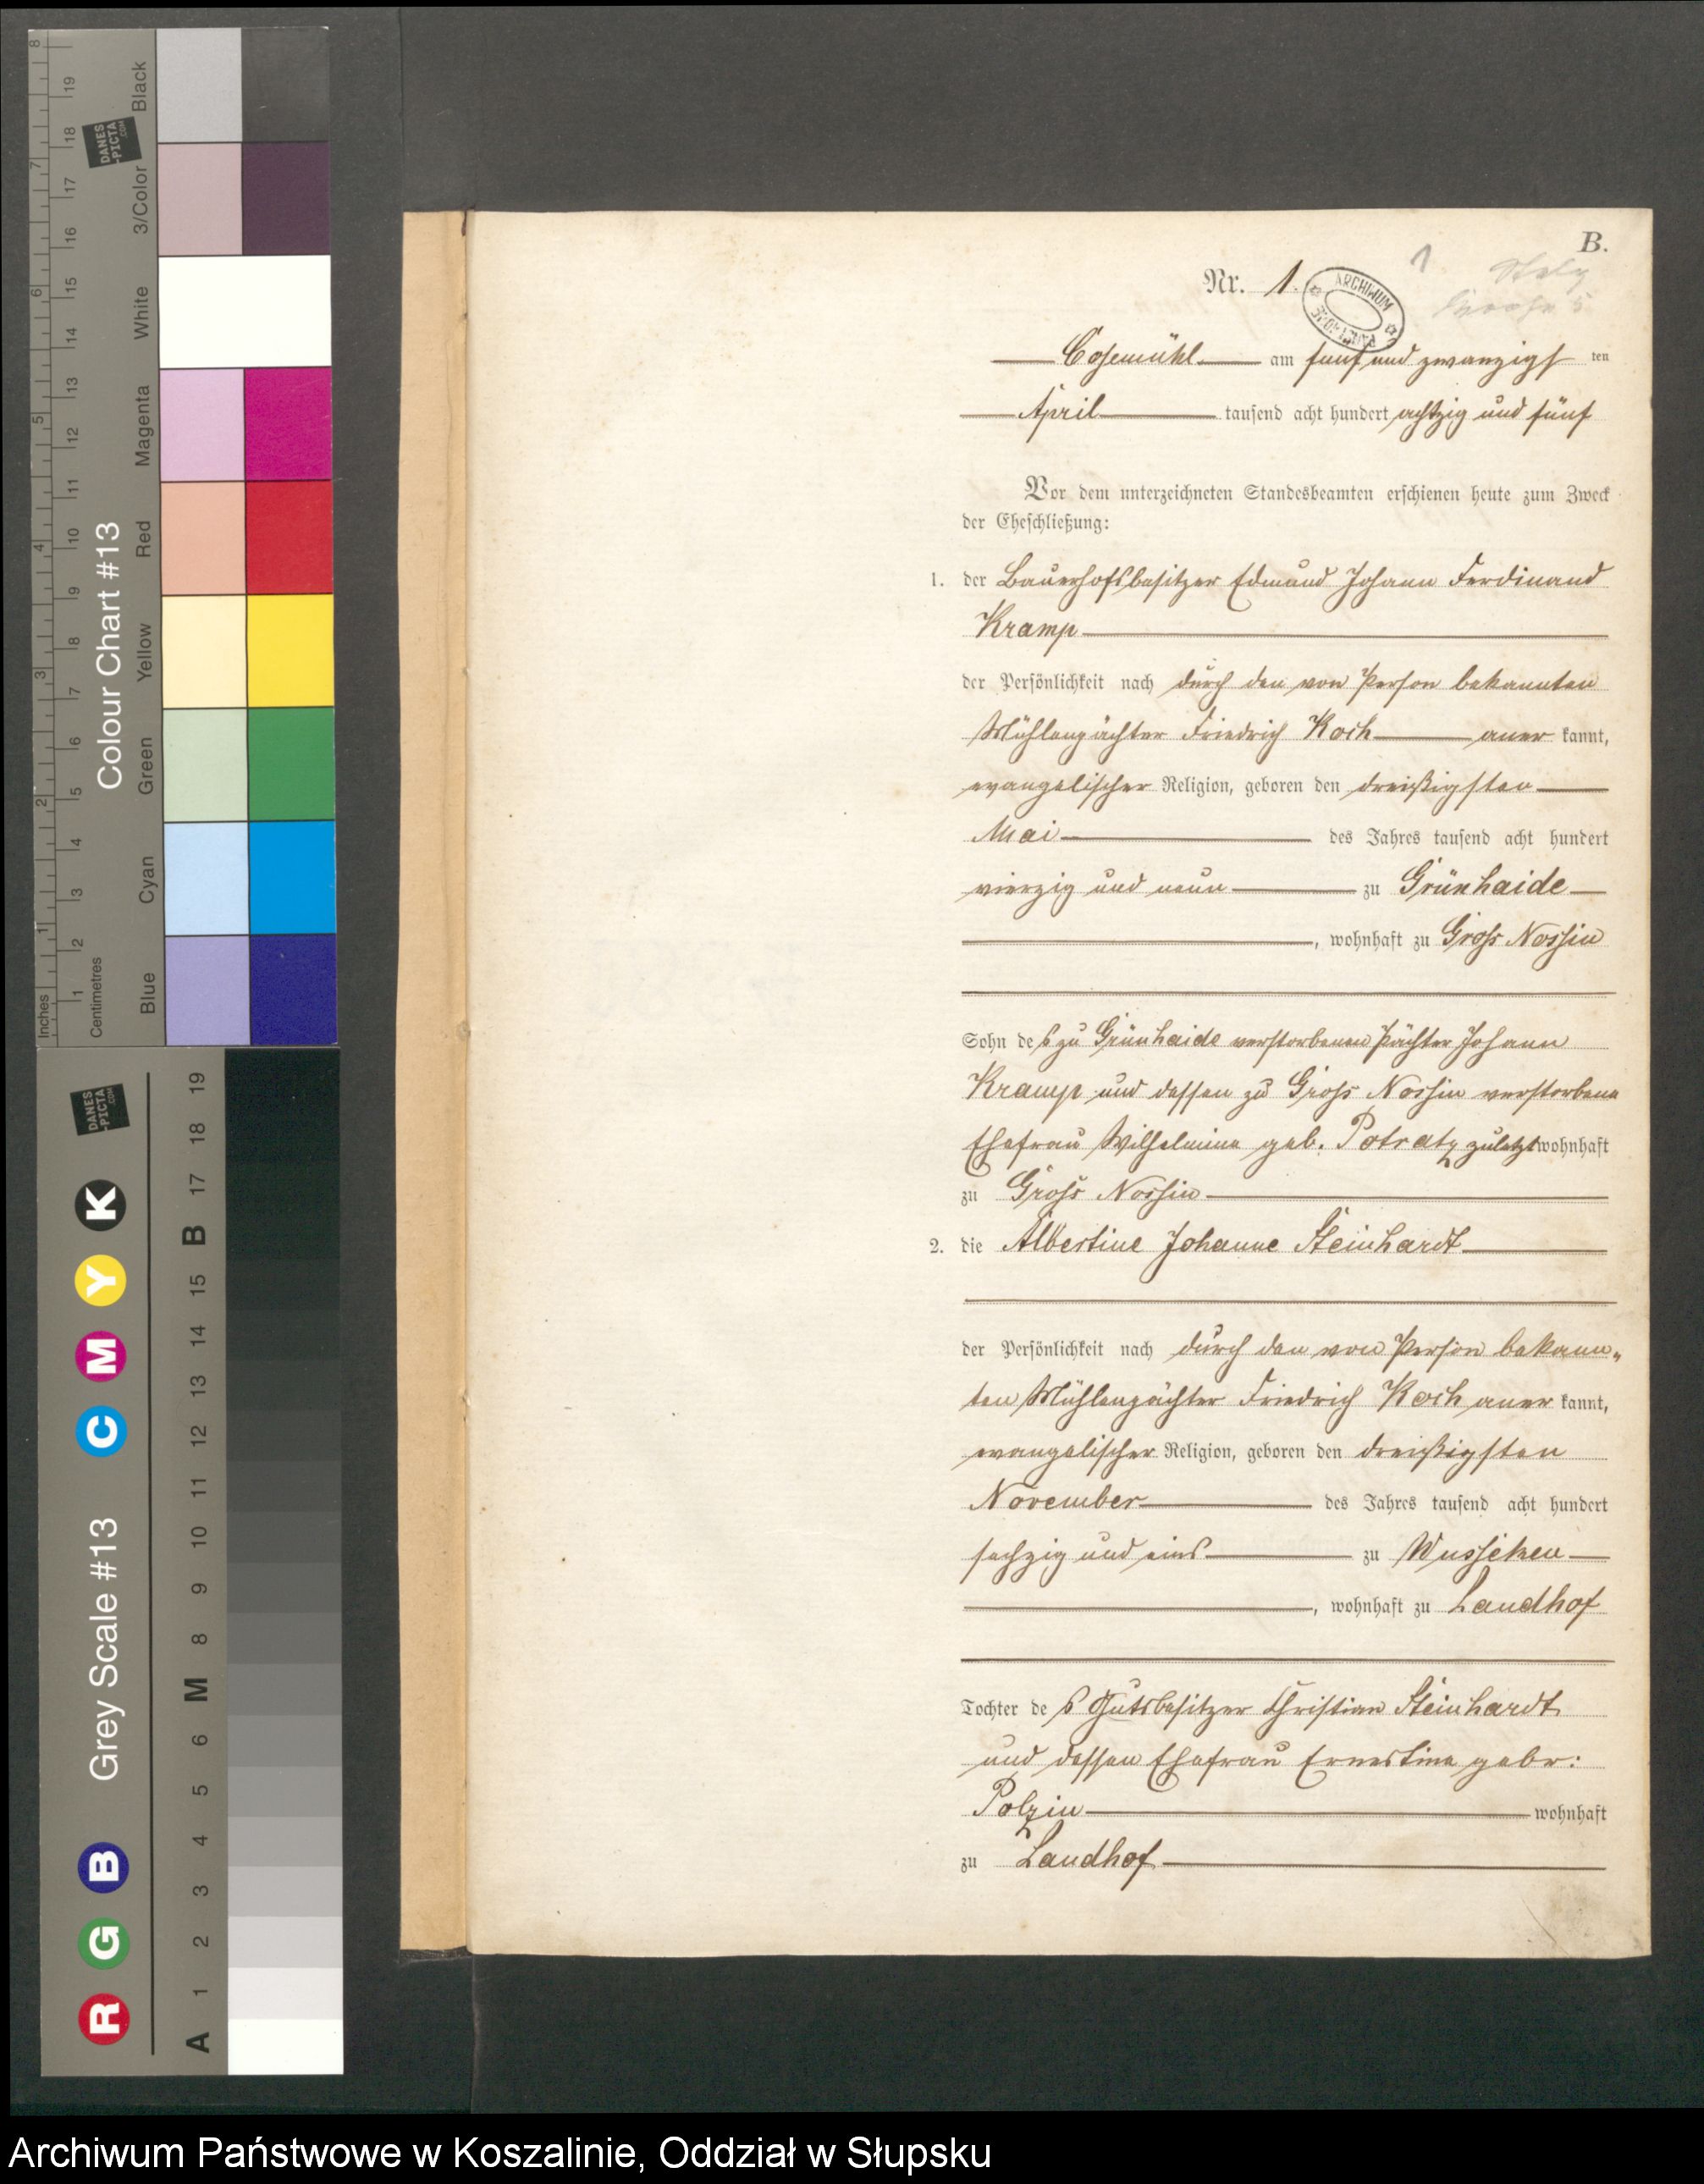 B.
Nr. 1.
1
ARCHIWUM
Cosemühl am fünf und zwanzigsten
April tausend acht hundert achtzig und fünf
Vor dem unterzeichneten Standesbeamten erschienen heute zum Zweck
der Eheschließung:
1. der Bauerhofsbesitzer Edmund Johann Ferdinand
Kramp
der Persönlichkeit nach durch den von Person bekannten
Mühlenpächter Friedrich Koch anerkannt,
evangelischer Religion, geboren den dreißigsten
Mai des Jahres tausend acht hundert
vierzig und neun zu Grünhaide
, wohnhaft zu Gross Nossin
Sohn des zu Grünhaide verstorbenen Pächter Johann
Kramp und dessen zu Gross Nossin verstorbene
Ehefrau Wilhelmine geb. Potratz zuletzt wohnhaft
zu Gross Nossin
2. die Albertine Johanne Steinhardt
der Persönlichkeit nach durch den von Person bekann„
ten Mühlenpächter Friedrich Koch anerkannt,
evangelischer Religion, geboren den dreißigsten
November des Jahres tausend acht hundert
sechzig und eins zu Wusseken
, wohnhaft zu Landhof
Tochter des Gutsbesitzer Christian Steinhardt
und dessen Ehefrau Ernestine gebr:
Polzin wohnhaft
zu Landhof
Colour Chart #13
Black
3/Color
White
Magenta
Red
Yellow
Green
Cyan
Blue
8 7 6 5 4 3 2 1 Inches
19 18 17 16 15 14 13 12 11 10 9 8 7 6 5 4 3 2 1 Centimetres
DANES
-PICTA
.COM
Grey Scale #13
R G B C M Y K
A 1 2 3 4 5 6 M 8 9 10 11 12 13 14 15 B 17 18 19
DANES
-PICTA
.COM
Archiwum Państwowe w Koszalinie, Oddział w Słupsku